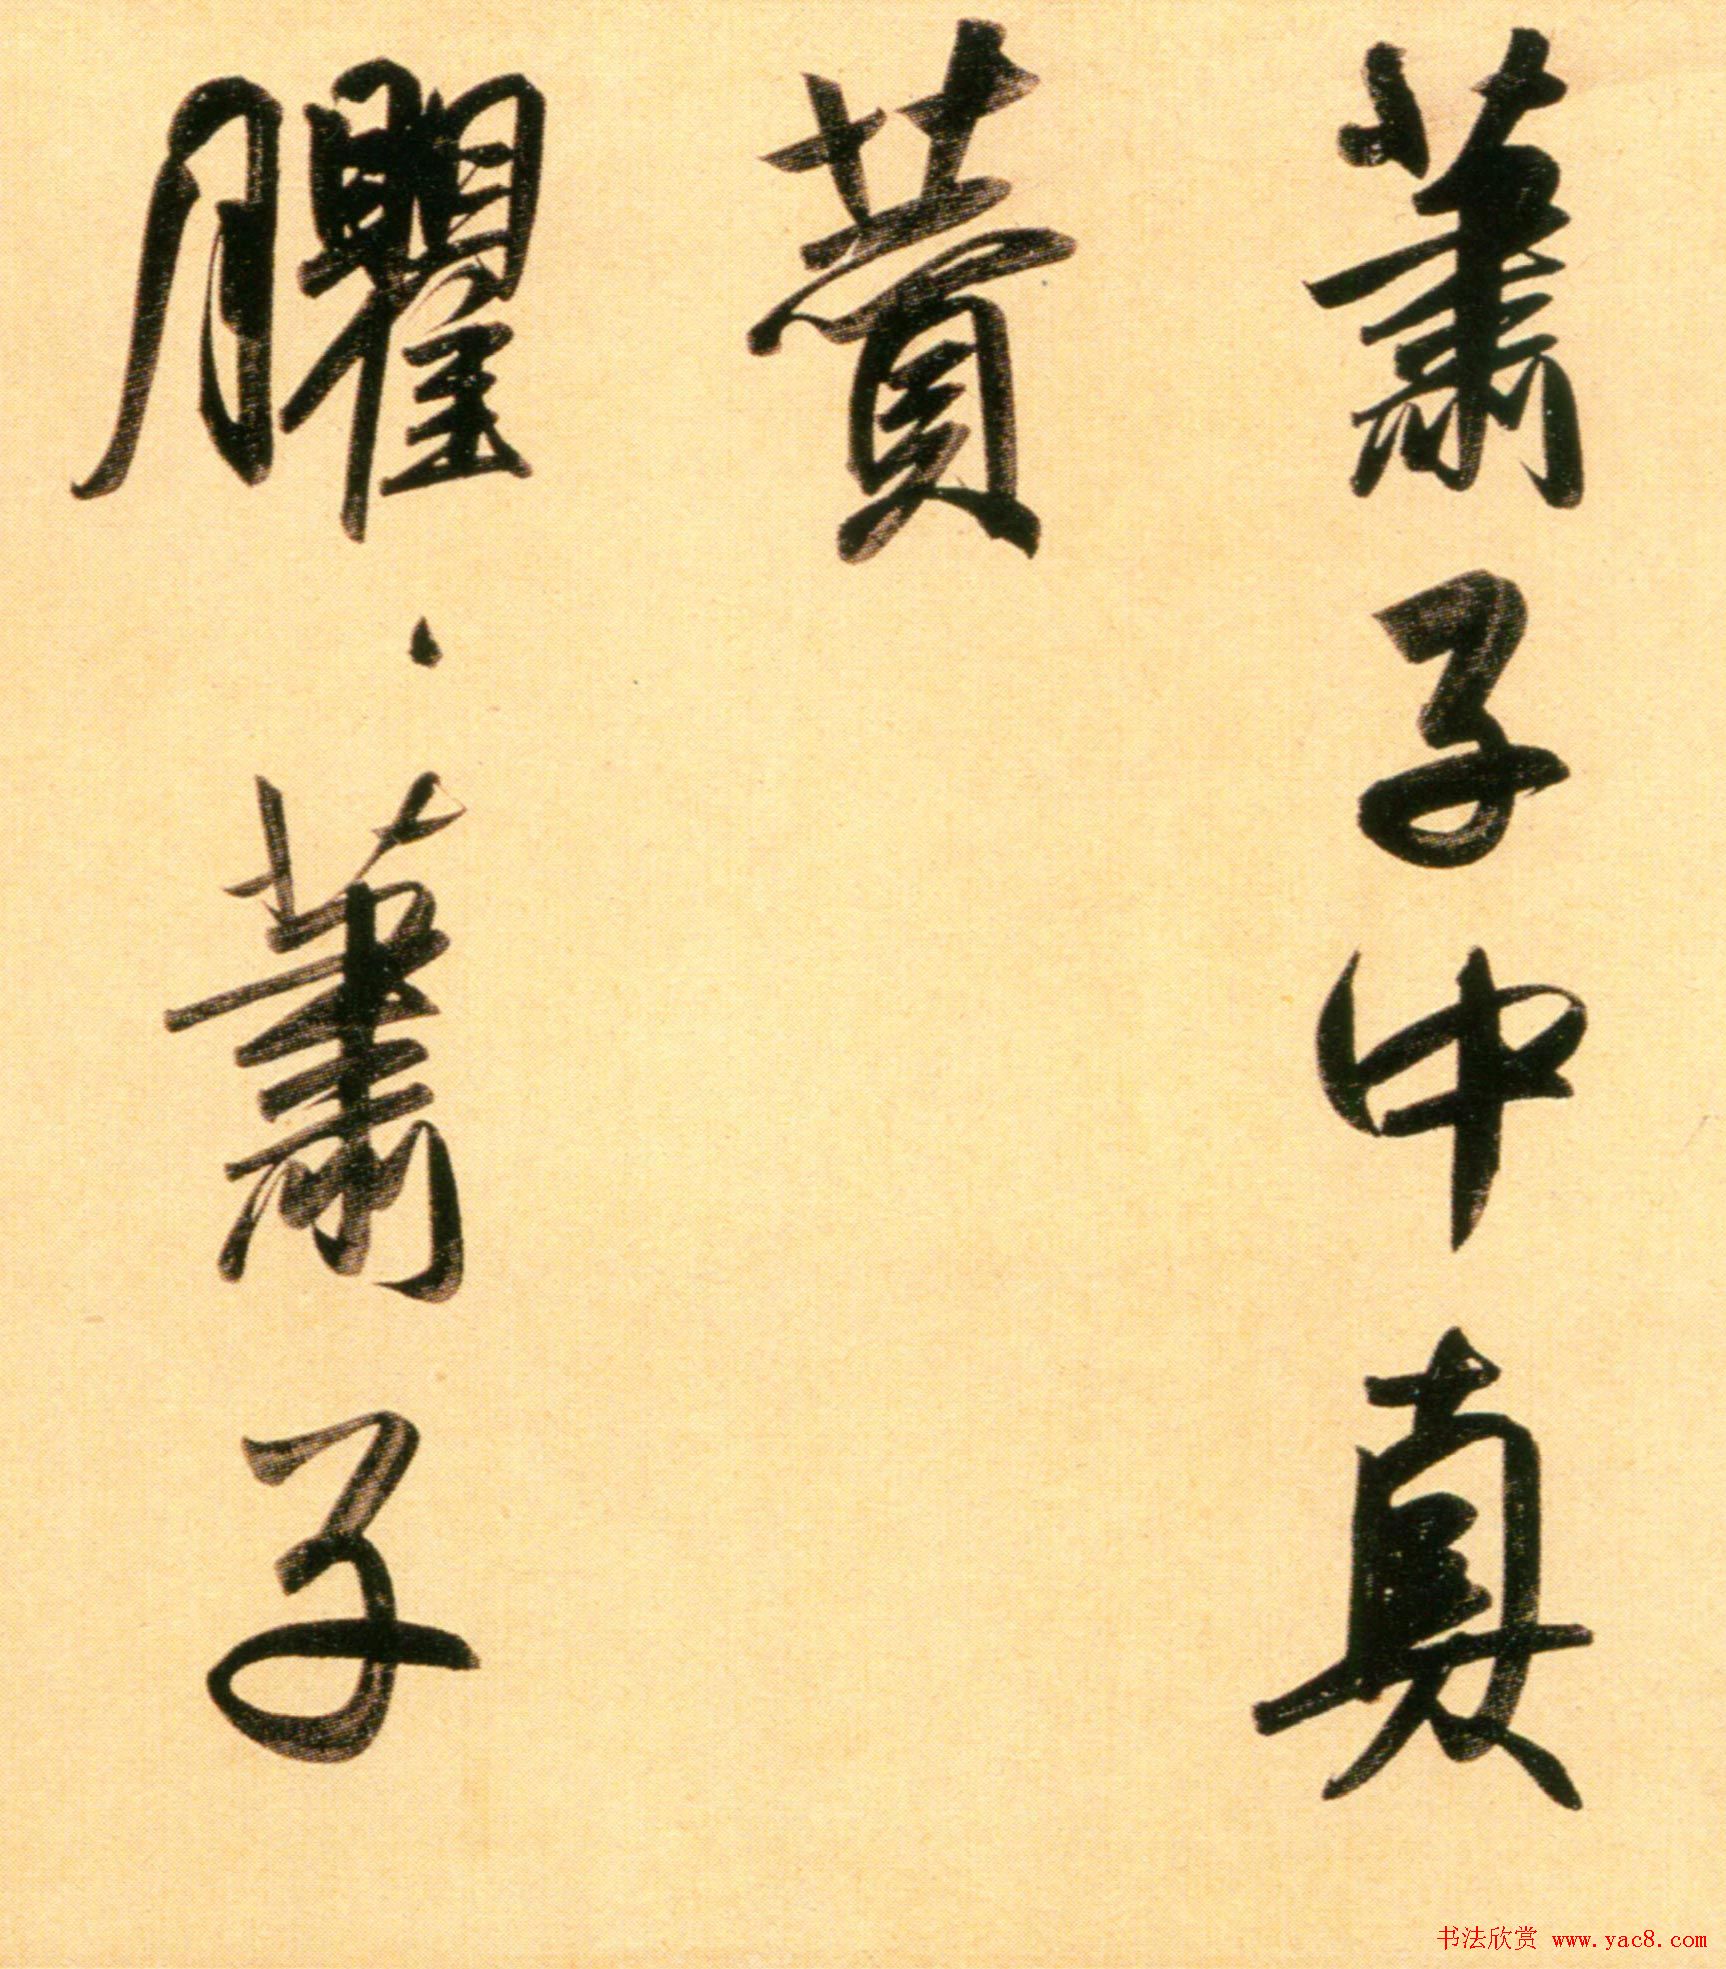 蕭子中真
贊
臞々蕭子
书法欣赏 www.yac8.com